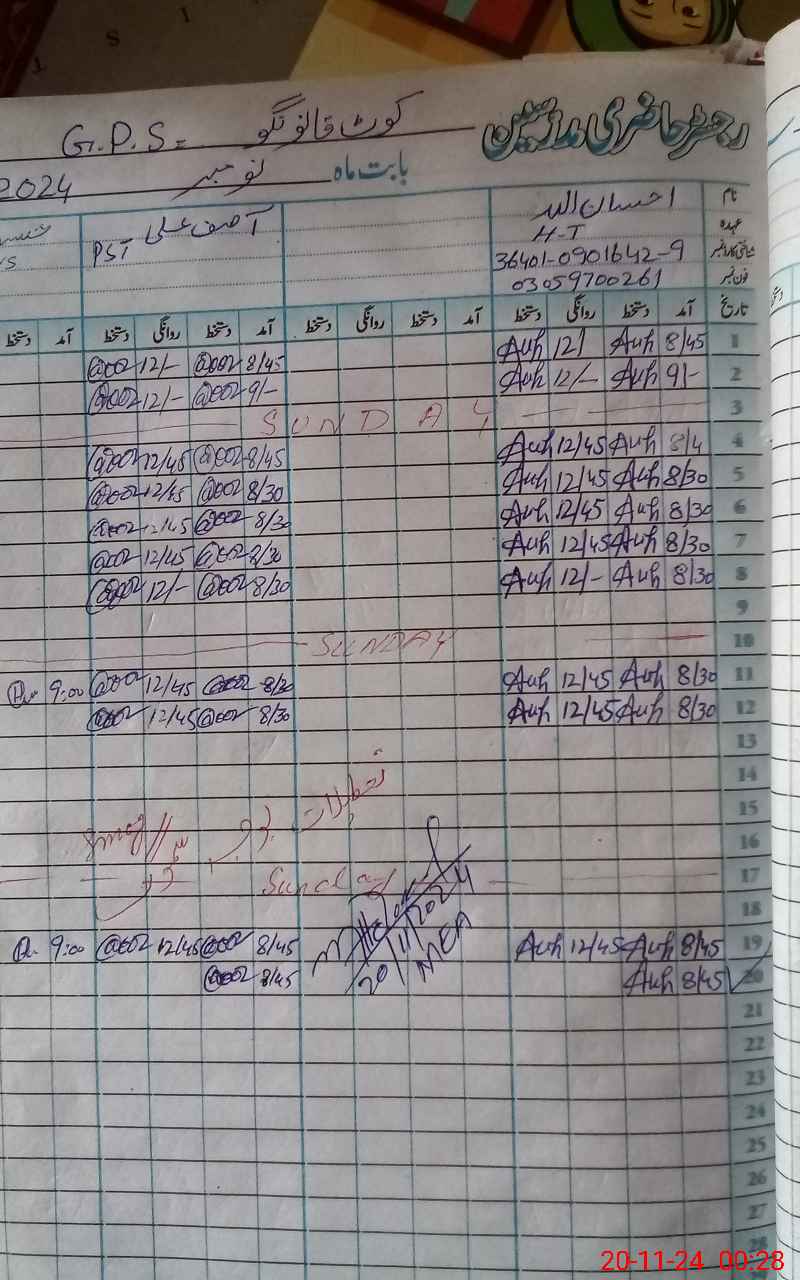 رجسٹر حاضری مدرسین
G.P.S. کوٹ قانونگو
بابت ماہ نومبر 2024
نام احسان اللہ آصف علی
عہدہ H-T PST
شناختی کارڈ نمبر 36401-0901642-9
فون نمبر 03059700261
تاریخ آمد دستخط روانگی دستخط آمد دستخط روانگی دستخط آمد دستخط روانگی دستخط آمد دستخط
1 8/45 Auh 12/ Auh 8/45 12/-
2 9/- Auh 12/- Auh 9/- 12/-
3 SUNDAY
4 8/4 Auh 12/45 Auh 8/45 12/45
5 8/30 Auh 12/45 Auh 8/30 12/45
6 8/30 Auh 12/45 Auh 8/30 12/45
7 8/30 Auh 12/45 Auh 8/30 12/45
8 8/30 Auh 12/- Auh 8/30 12/-
9
10 SUNDAY
11 8/30 Auh 12/45 Auh 8/30 12/45 9:00
12 8/30 Auh 12/45 Auh 8/30 12/45
13
14
15
تعطیلات
16
17 Sunday
18
19 8/45 Auh 12/45 Auh 8/45 12/45 9:00
20 8/45 Auh 8/45
20/11/2024
MEA
21
22
23
24
25
26
27
28
20-11-24 00:28